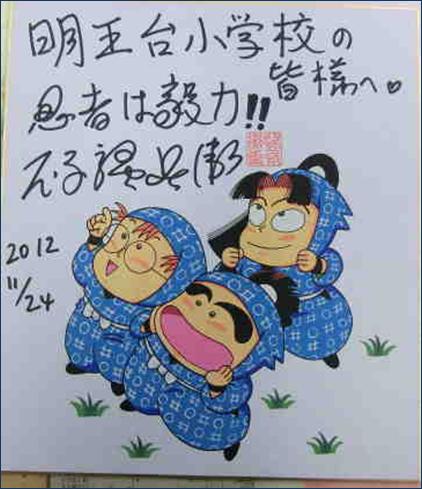 明王台小学校の
皆様へ♥
忍者は毅力!!
尼子騒兵衛
2012
11/24